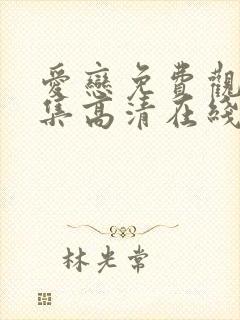 愛戀免費觀
集高清在綫
林光常